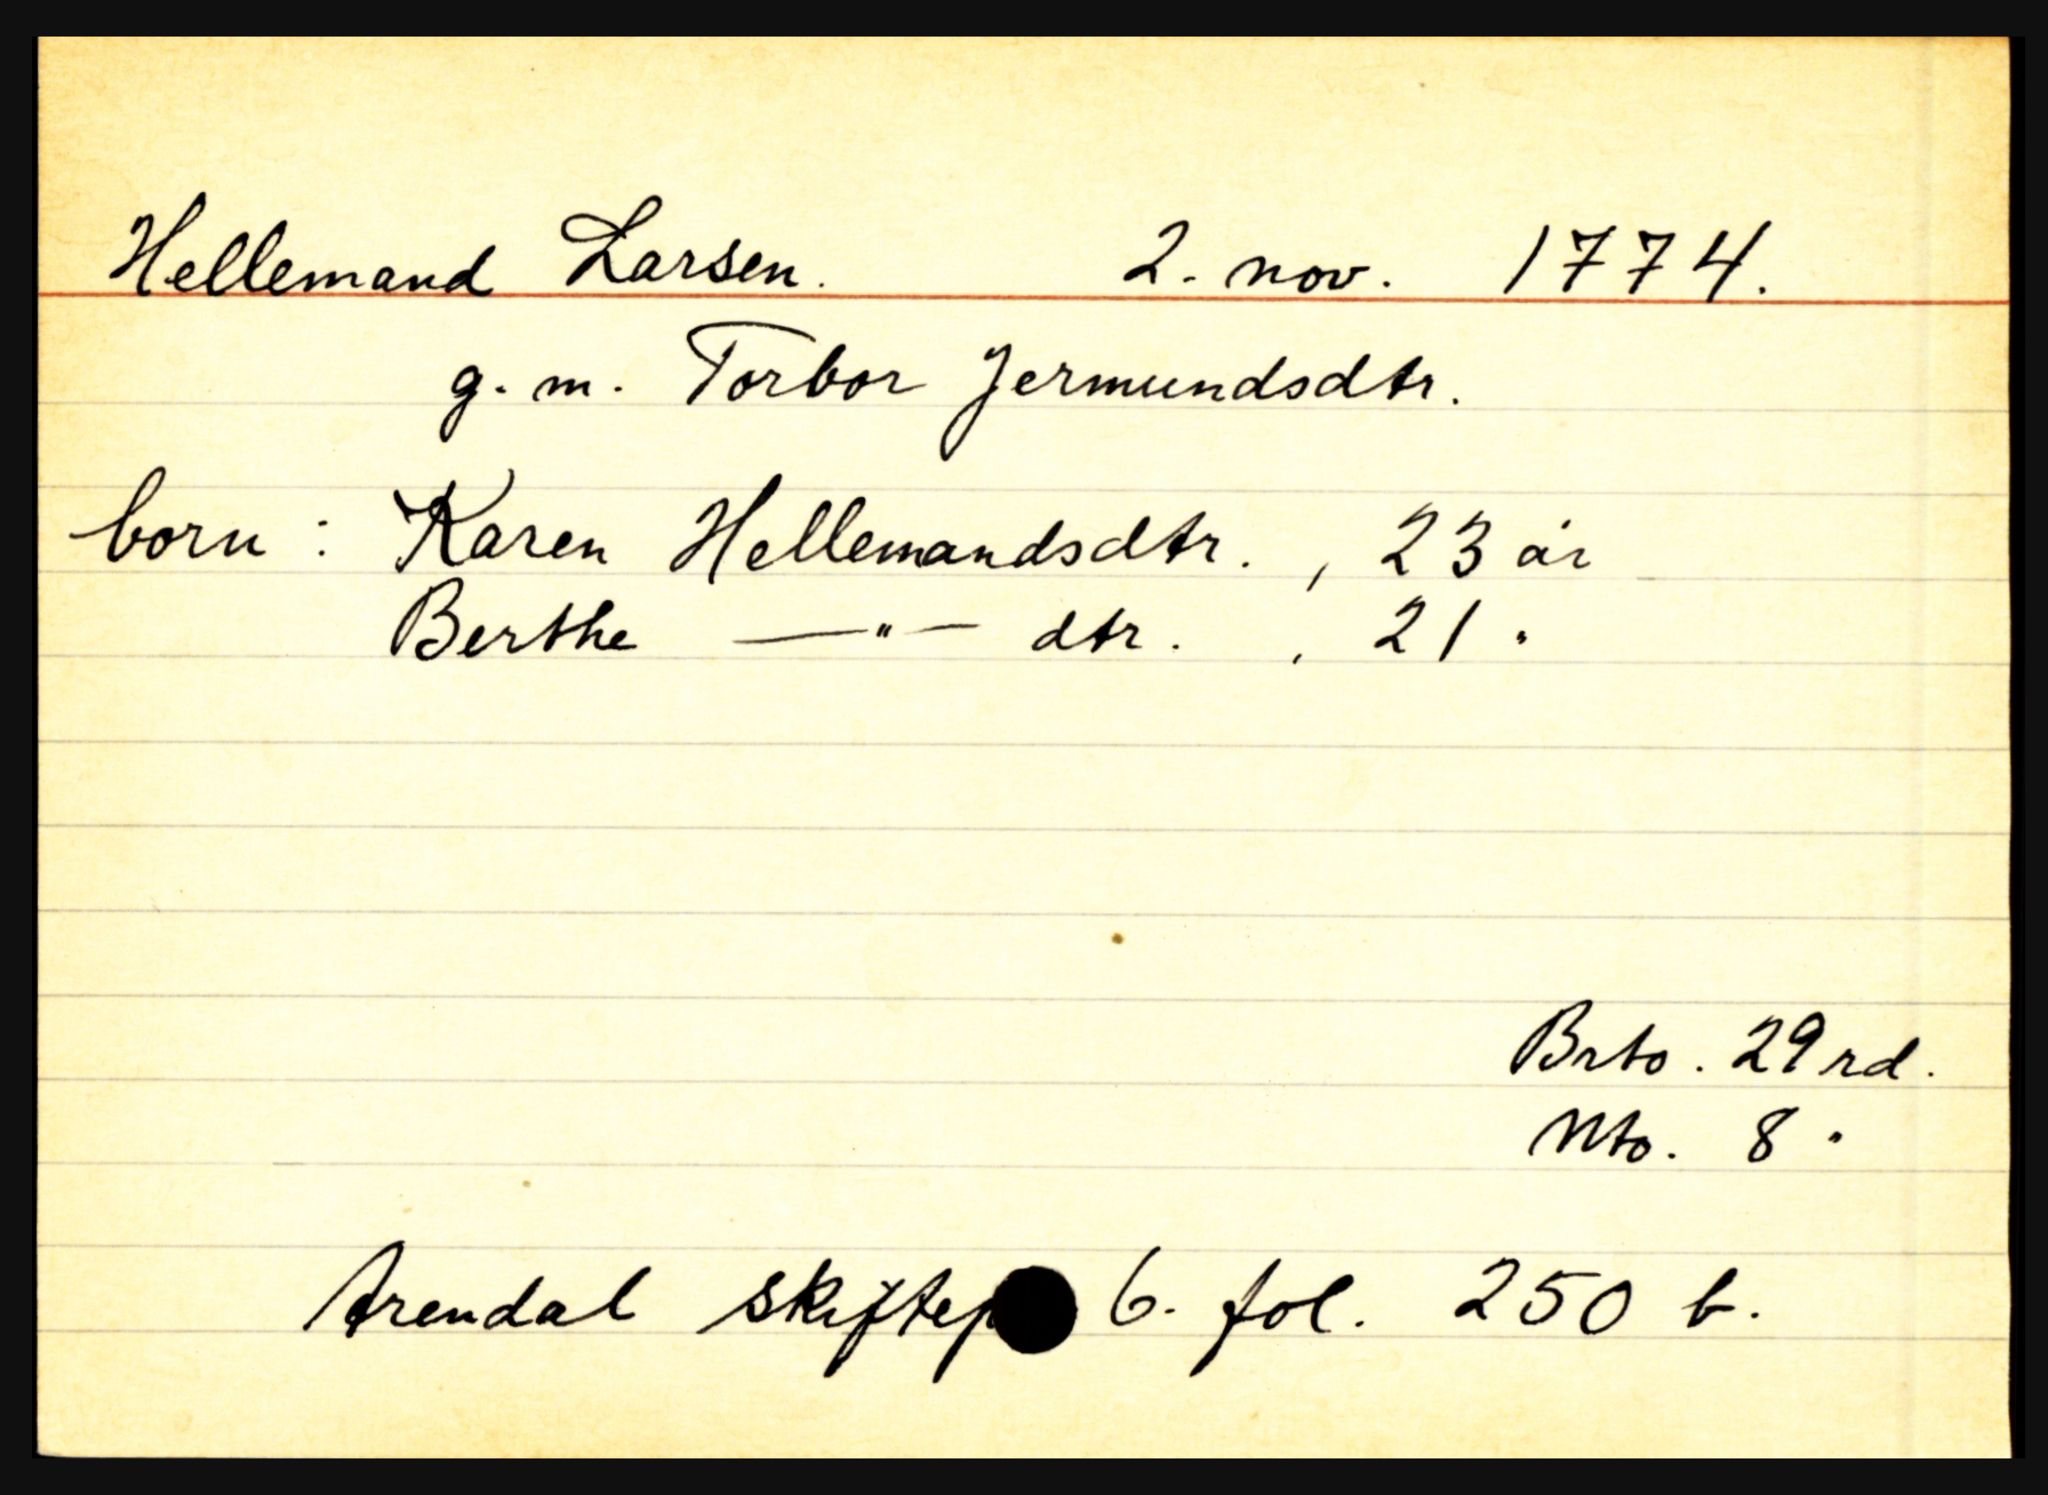 Hellemand Larsen. 2. nov. 1774.
g. m. Torbor Jermundsdtr.
born : Karen Hellemandsdtr. , 23 år
Berthe —"— dtr. , 21 "
Brto. 29 rd.
Nto. 8 "
Arendal skiftep 6. fol. 250 b.